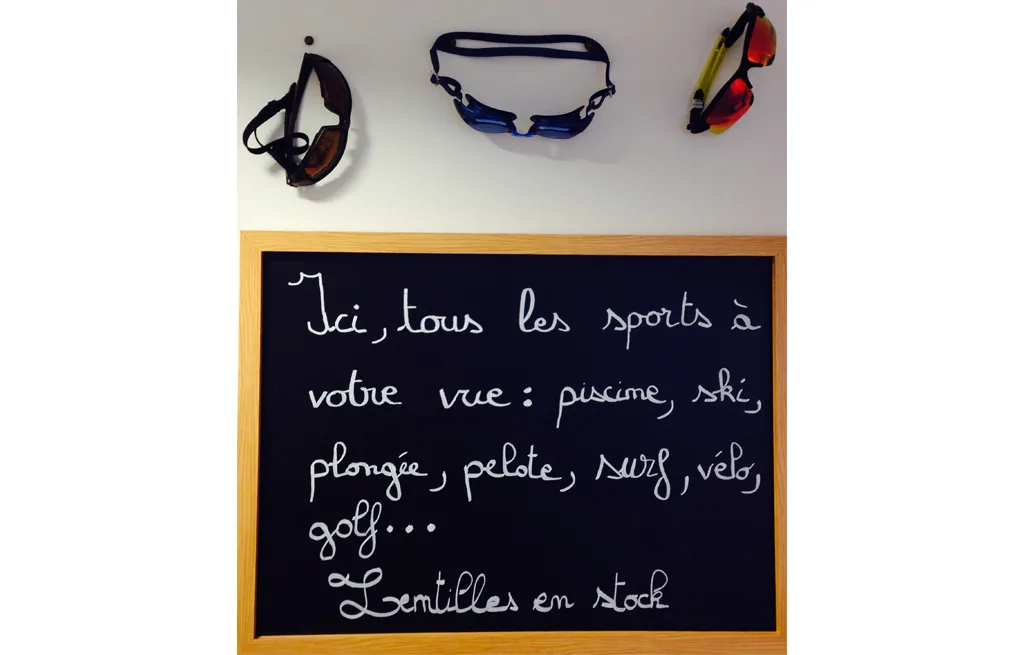 Ici, tous les sports à
votre vue : piscine, ski,
plongée, pelote, surf, vélo,
golf...
Lentilles en stock